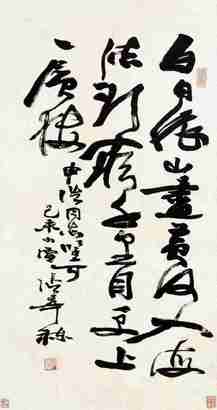 白日依山盡黃河入海
流欲窮千里目更上
一層樓
同志
己未